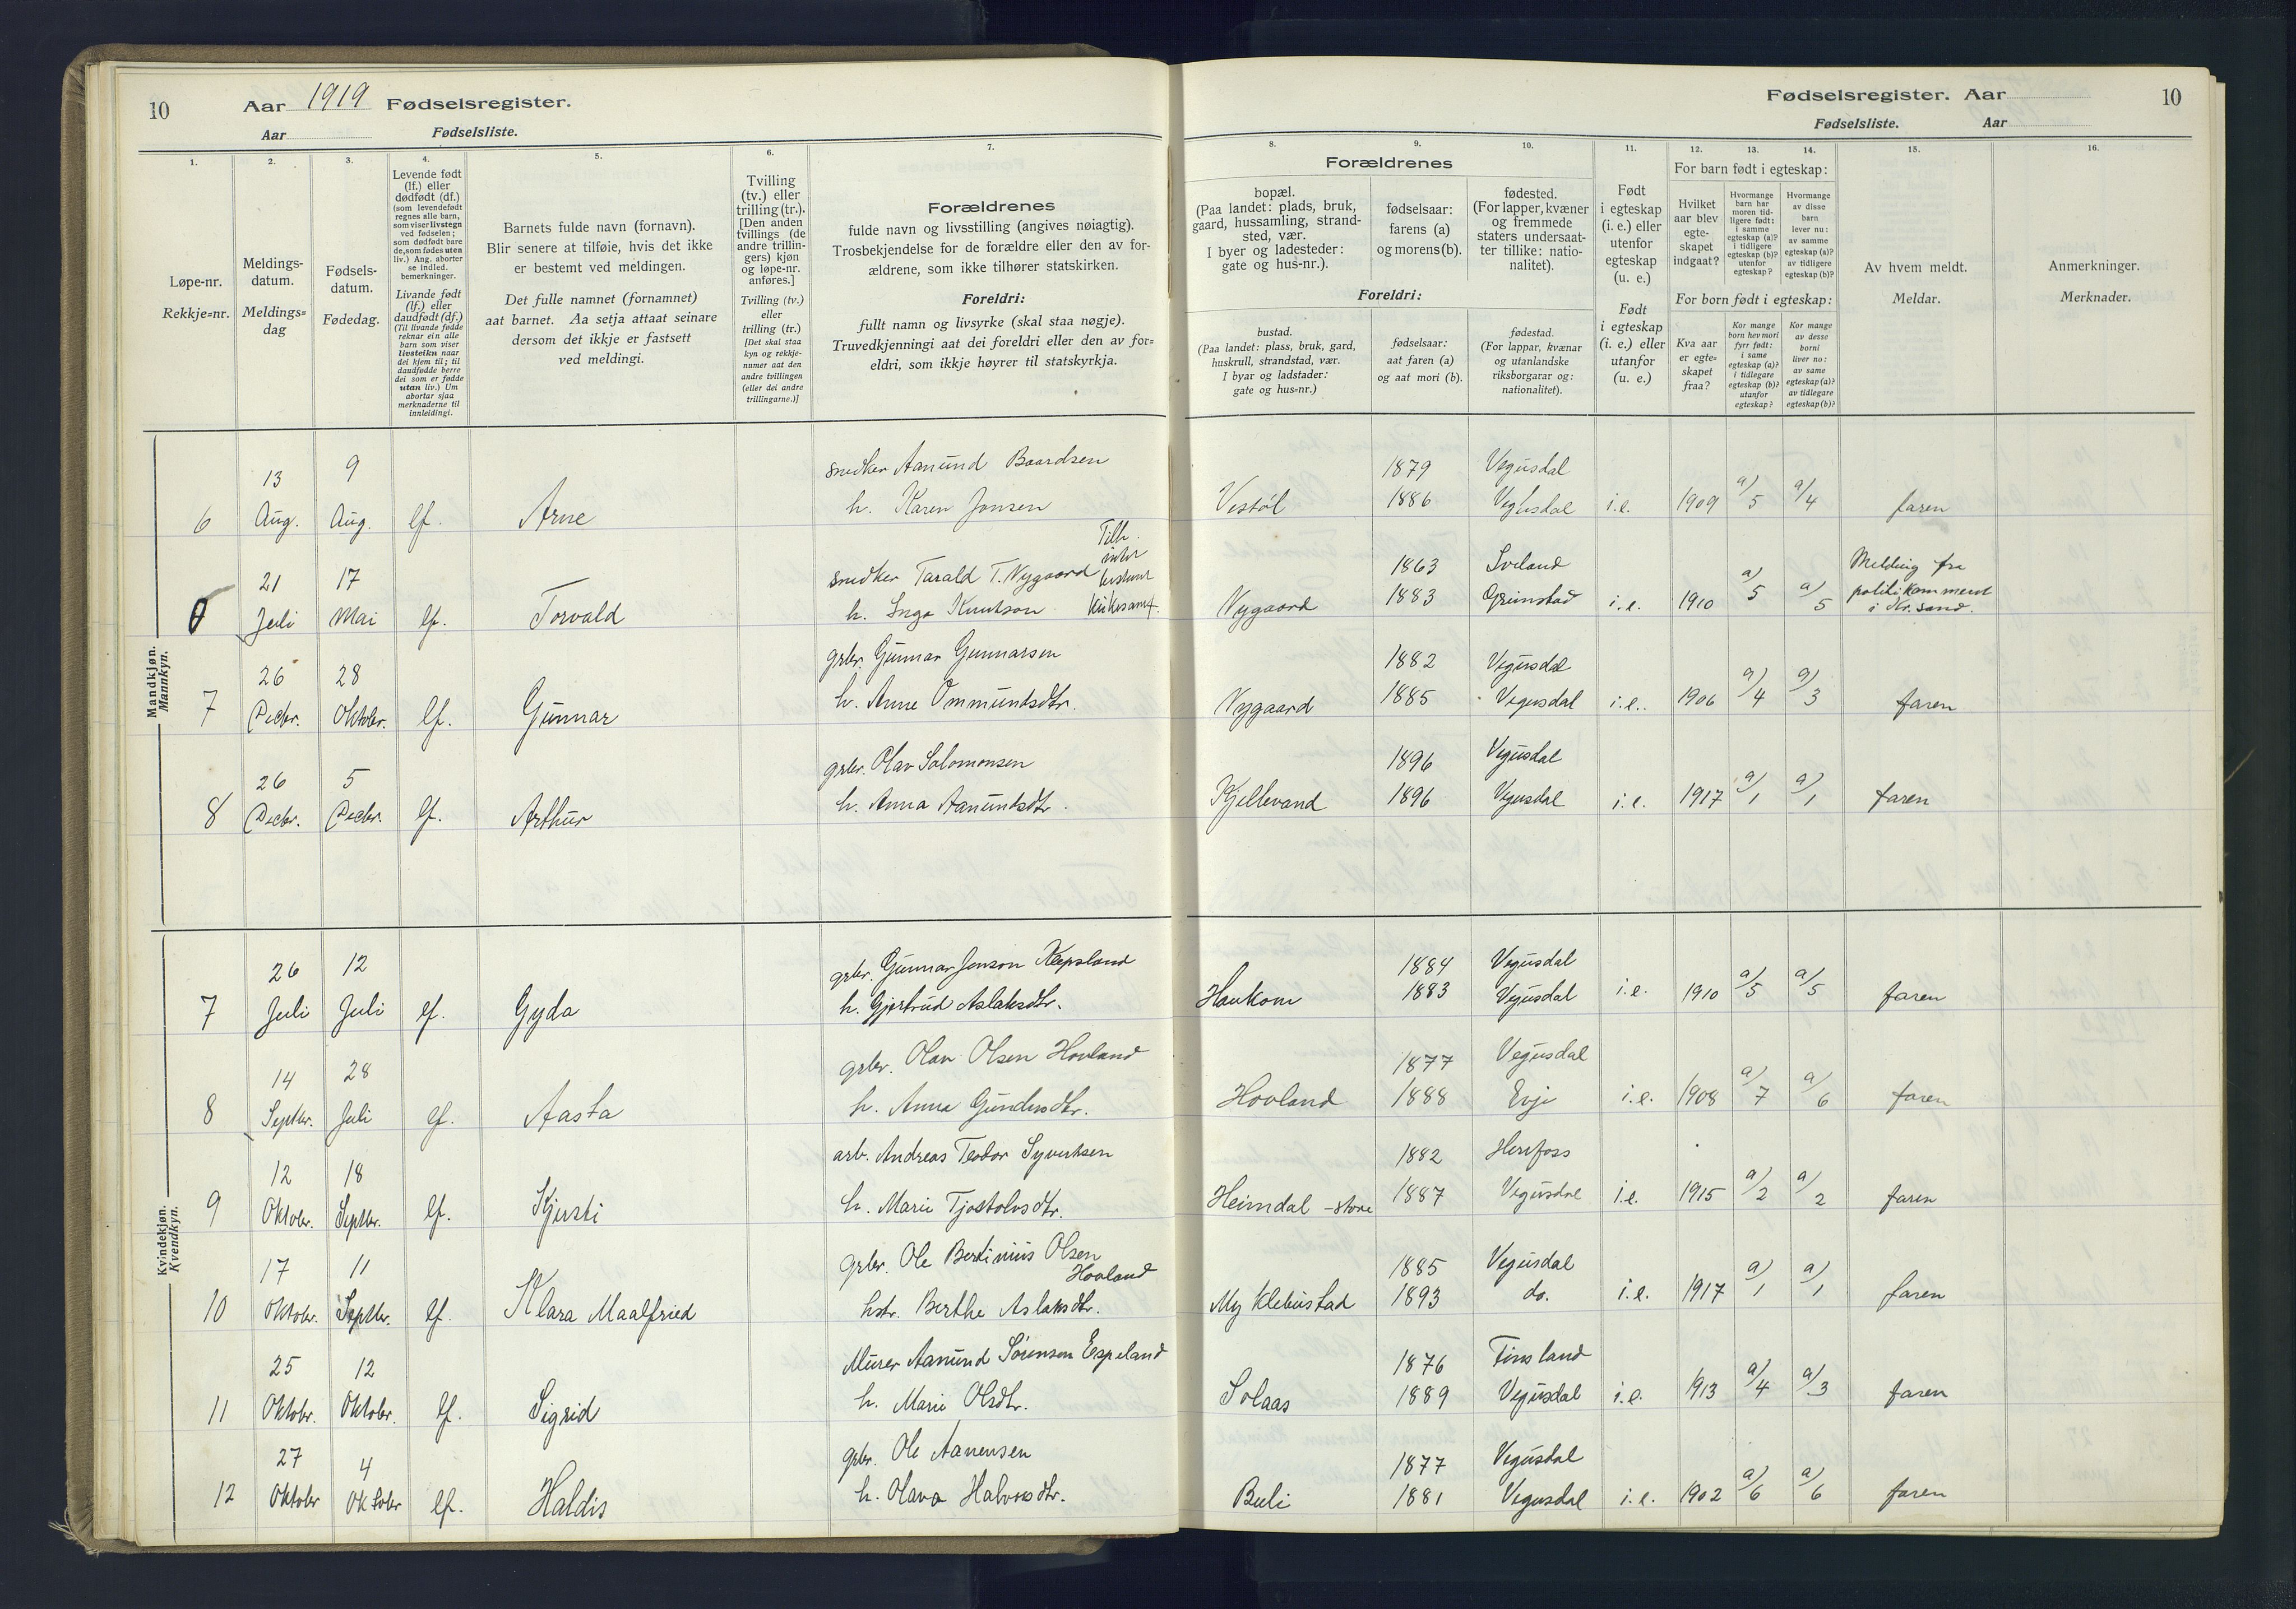 10
Aar 1919 Fødselsregister.
Aar Fødselsliste.
1.
2.
3.
4.
5.
6.
7.
Løpe-nr.
Rekkje=nr.
Meldings-
datum.
Meldings=
dag
Fødsels-
datum.
Fødedag.
Levende født
(lf.) eller
dødfødt (df.)
(som levendefødt
regnes alle barn,
som viser livstegn
ved fødselen;
som dødfødt bare
de, som fødes uten
liv.) Ang. aborter
se indled.
bemerkninger.
Livande født
(lf.) eller
daudfødt (df.)
(Til livande fødde
reknar ein alle
barn som viser
livsteikn naar
dei kjem til; til
daudfødde berre
dei som er fødde
utan liv.) Um
abortar sjaa
merknaderne til
innleidingi.
Barnets fulde navn (fornavn).
Blir senere at tilføie, hvis det ikke
er bestemt ved meldingen.
Det fulle namnet (fornamnet)
aat barnet. Aa setja attaat seinare
dersom det ikkje er fastsett
ved meldingi.
Tvilling
(tv.) eller
trilling (tr.).
[Den anden
tvillings (de
andre trillin-
gers) kjøn
og løpe-nr.
anføres.]
Tvilling (tv.)
eller
trilling (tr.)
[Det skal staa
kyn og rekkje-
numer aat den
andre tvillingen
(eller dei andre
trillingarne.)]
Forældrenes
fulde navn og livsstilling (angives nøiagtig).
Trosbekjendelse for de forældre eller den av for-
ældrene, som ikke tilhører statskirken.
Foreldri:
fullt namn og livsyrke (skal staa nøgje).
Truvedkjenningi aat dei foreldri eller den av for=
eldri, som ikkje høyrer til statskyrkja.
Fødselsregister. Aar
10
Fødselsliste. Aar
8.
9.
10.
11.
12.
13.
14.
15.
16.
Forældrenes
bopæl.
(Paa landet: plads, bruk,
gaard, hussamling, strand-
sted, vær.
I byer og ladesteder:
gate og hus-nr.).
fødselsaar:
farens (a)
og morens (b).
fødested.
(For lapper, kvæner
og fremmede
staters undersaat-
ter tillike: natio-
nalitet).
Foreldri:
bustad.
(Paa landet: plass, bruk, gard,
huskrull, strandstad, vær.
I byar og ladstader:
gate og hus=nr.)
fødselsaar:
aat faren (a)
og aat mori (b).
fødestad.
(For lappar, kvænar
og utanlandske
riksborgarar og:
nationalitet).
Født
i egteskap
(i. e.) eller
utenfor
egteskap
(u. e.)
Født
i egteskap
(i. e.) eller
utanfor
(u. e.)
For barn født i egteskap:
Hvilket
aar blev
egte-
skapet
indgaat?
Hvormange
barn har
moren tid-
ligere født:
i samme
egteskap (a)?
i tidligere
egteskap (b)?
utenfor
egteskap?
Hvormange
av disse
barn
lever nu:
av samme
egteskap (a)?
av tidligere
egteskap (b)?
For born født i egteskap:
Kva aar
er egte-
skapet
fraa?
Kor mange
born hev mori
fyrr født:
i same
egteskap (a)?
i tidlegare
egteskap (b)?
utanfor
egteskap?
Kor mange
av desse
borni
liver no:
av same
egteskap (a)?
av tidlegare
egteskap (b)?
Av hvem meldt.
Meldar.
Anmerkninger.
Merknader.
Mandkjøn.
Mannkyn.
6 13 Aug. 9 Aug. lf. Arne
snedker Aanund Baardsen
h. Karen Jonsen
Vestøl 1879 1886 Vegusdal Vegusdal i.e. 1909 a/5 a/4 faren
21 Juli 17 Mai lf. Torvald
snedker Tarald T. Nygaard
h. Inga Knutson
Tilh.
intet
bestemt
kirkesamf.
Nygaard 1863 1883 Iveland Grimstad i.e. 1910 a/5 a/5
Melding fra
politikammeret
i Kr.sand.
7 26 Decbr. 28 Oktobr. lf. Gunnar
grbr. Gunnar Gunnarsen
h. Anne Ommundsdtr.
Nygaard 1882 1885 Vegusdal Vegusdal i.e. 1906 a/4 a/3 faren
8 26 Decbr. 5 Decbr. lf. Arthur
grbr. Olav Salomonsen
h. Anna Aanundsdtr.
Kjellevand 1896 1896 Vegusdal Vegusdal i.e. 1917 a/1 a/1 faren
Kvindekjøn.
Kvendkyn.
7 26 Juli 12 Juli lf. Gyda
grbr. Gunnar Jenson Kepsland
h. Gjertrud Aslaksdtr.
Haukom 1884 1883 Vegusdal Vegusdal i.e. 1910 a/5 a/5 faren
8 14 Septbr. 28 Juli lf. Aasta
grbr. Olav Olsen Hovland
h. Anna Gundersdtr.
Hovland 1877 1888 Vegusdal Evje i.e. 1908 a/7 a/6 faren
9 12 Oktobr. 18 Septbr. lf. Kjersti
arb. Andreas Teodor Syvertsen
h. Marie Tjostolvsdtr.
Heimdal - store 1882 1887 Herefoss Vegusdal i.e. 1915 a/2 a/2 faren
10 17 Oktobr. 11 Septbr. lf. Klara Maalfried
grbr. Ole Bertinius Olsen
Hovland
hstr. Berthe Aslaksdtr.
Myklebustad 1885 1893 Vegusdal do. i.e. 1917 a/1 a/1 faren
11 25 Oktobr. 12 Oktobr. lf. Sigrid
Murer Aanund Sørensen Espeland
h. Marie Olsdtr.
Solaas 1876 1889 Finsland Vegusdal i.e. 1913 a/4 a/3 faren
12 27 Oktobr 4 Oktobr lf. Haldis
grbr. Ole Aanensen
h. Olava Halvorsdtr.
Beli 1877 1881 Vegusdal Vegusdal i.e. 1902 a/6 a/6 faren